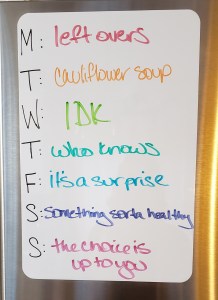 M: leftovers
T: Cauliflower soup
W: IDK
T: who knows
F: it's a surprise
S: Something sorta healthy
S: the choice is
up to you